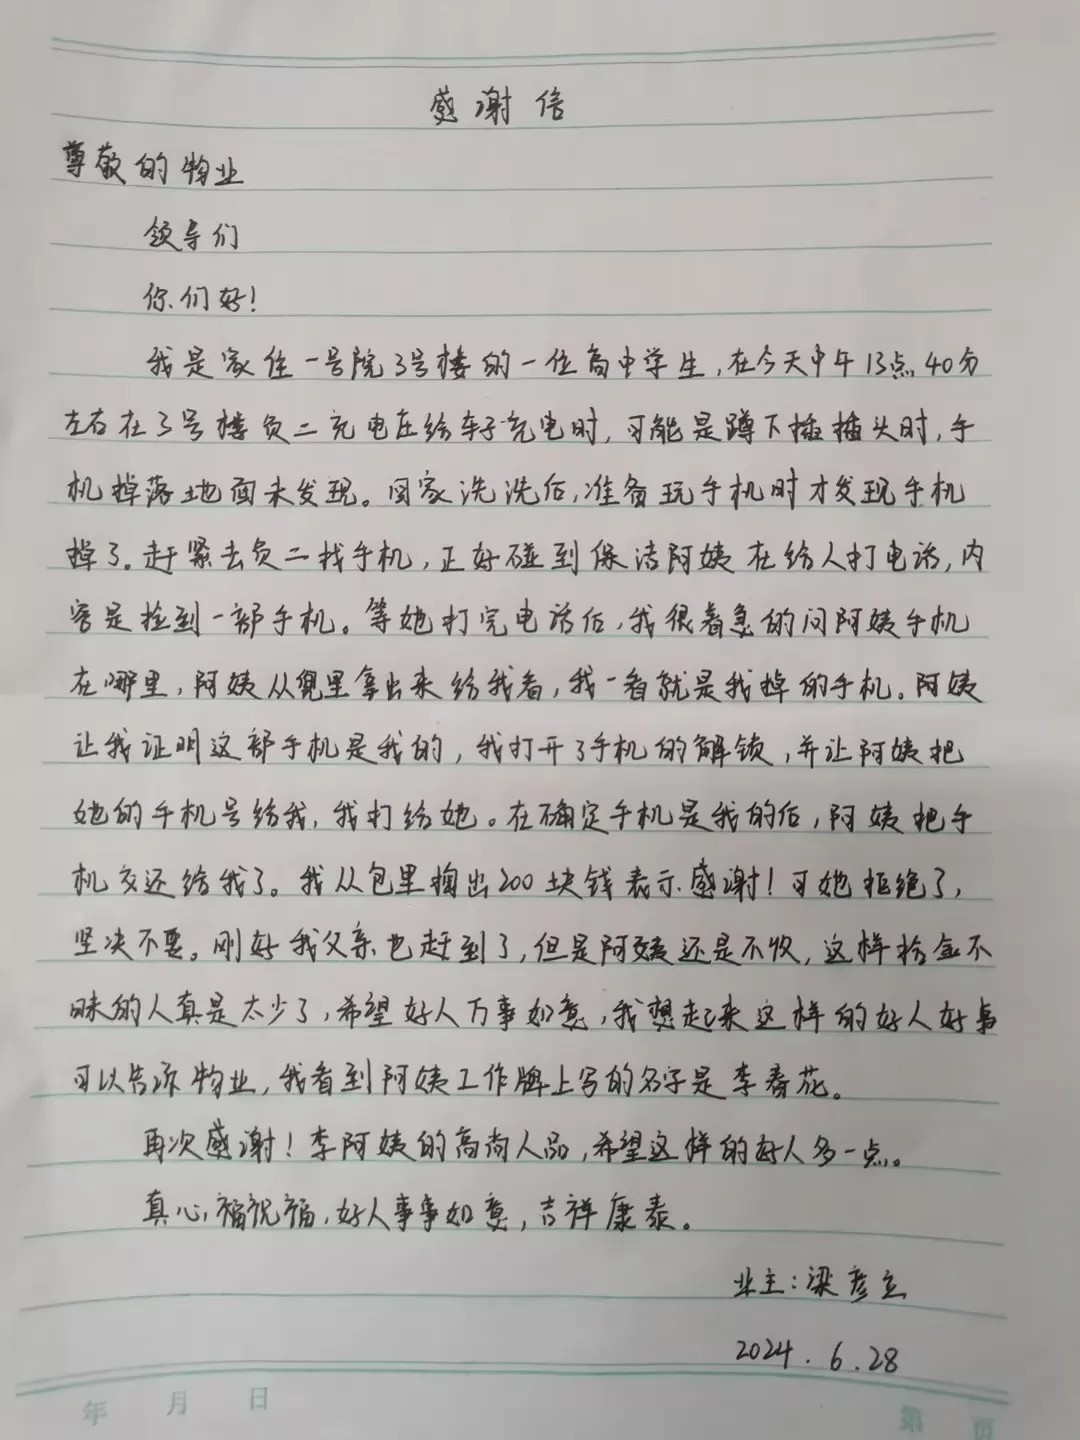 感谢信
尊敬的物业
领导们
你们好!
我是家住一号院3号楼的一位高中学生,在今天中午13点40分
左右在3号楼负二充电在给车子充电时,可能是蹲下插插头时,手
机掉落地面未发现。回家洗洗后,准备玩手机时才发现手机
掉了。赶紧去负二找手机,正好碰到保洁阿姨在给人打电话,内
容是捡到一部手机。等她打完电话后,我很着急的问阿姨手机
在哪里,阿姨从兜里拿出来给我看,我一看就是我掉的手机。阿姨
让我证明这部手机是我的,我打开了手机的解锁,并让阿姨把
她的手机号给我,我打给她。在确定手机是我的后,阿姨把手
机交还给我了。我从包里掏出200块钱表示感谢!可她拒绝了,
坚决不要。刚好我父亲也赶到了,但是阿姨还是不收,这样拾金不
昧的人真是太少了,希望好人万事如意,我想起来这样的好人好事
可以告诉物业,我看到阿姨工作牌上写的名字是李春花。
再次感谢!李阿姨的高尚人品,希望这样的好人多一点。
真心福祝福,好人事事如意,吉祥康泰。
业主:梁彦立
2024.6.28
年 月 日 第 页